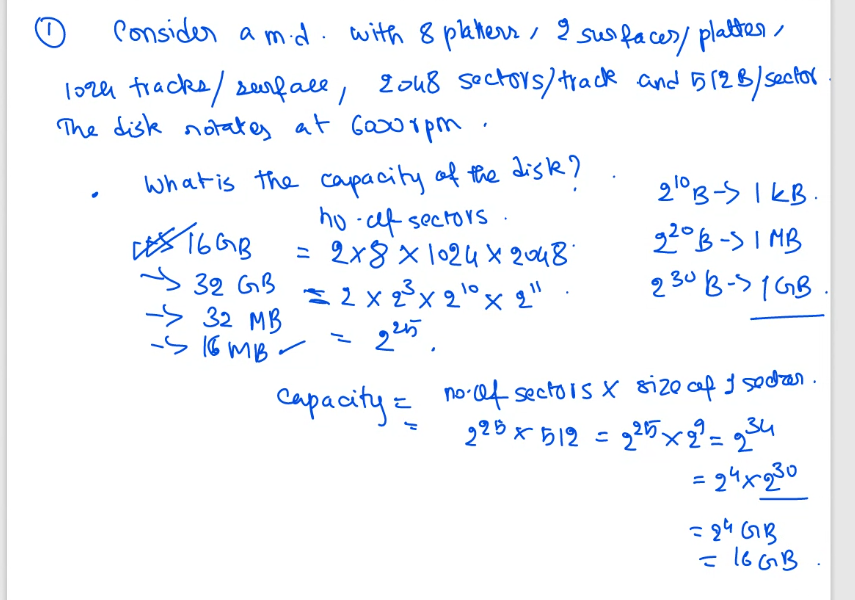 ① Consider a m.d. with 8 platters, 2 surfaces/platter,
1024 tracks/surface, 2048 sectors/track and 512B/sector.
The disk rotates at 6000rpm.
• What is the capacity of the disk?
2^10 B -> 1 kB.
no. of sectors.
16GB = 2×8×1024×2048
2^20 B -> 1 MB
-> 32 GB = 2 × 2^3 × 2^10 × 2^11.
2^30 B -> 1GB.
-> 32 MB
-> 16 MB ✓ = 2^25.
capacity = no. of sectors × size of 1 sector.
2^25 × 512 = 2^25 × 2^9 = 2^34
= 2^4 × 2^30
= 2^4 GB
= 16 GB.